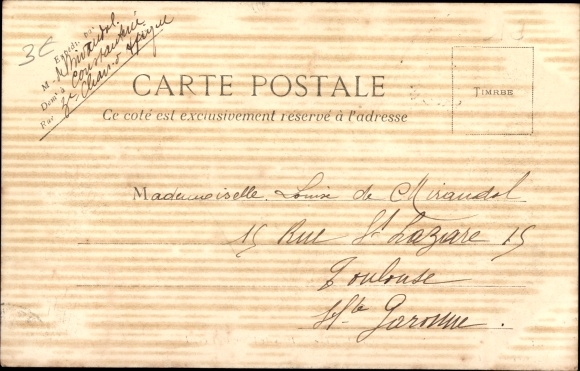 3C
Expédié par
M. de Mirandol.
Demt à Constantine
Rue 3e Chas. d'Afrique
CARTE POSTALE
Ce coté est exclusivement réservé à l'adresse
TIMRBE
Mademoiselle Louise de Mirandol
15 Rue St Lazare 15
Toulouse
Hte Garonne.